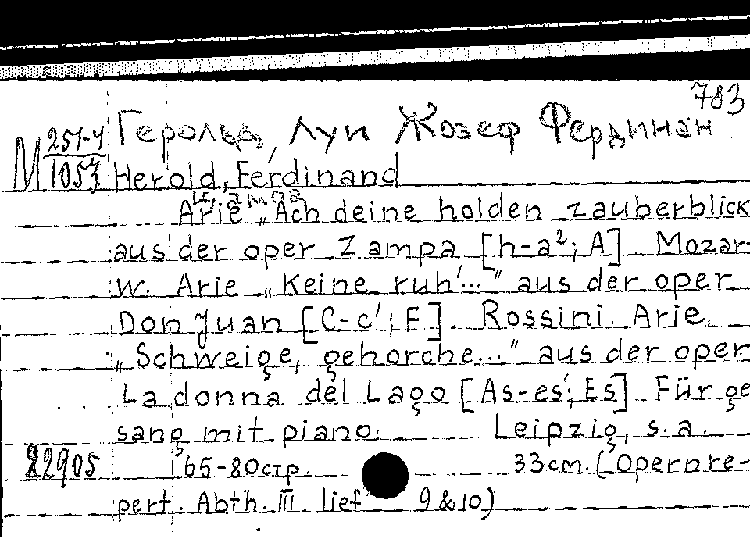 783
Герольд, Луи Жозеф Фердинан
М 251-4
1053 Herold, Ferdinand
Arie „Ach deine holden zauberblick
aus der oper Zampa [h-a²; A] Mozar-
w. Arie „Keine ruh'..." aus der oper
Don Juan [C-c'; F]. Rossini. Arie
„Schweige, gehorche..." aus der oper
La donna del Lago [As-es'; Es] Für ge
sang mit piano. Leipzig, s.a.
22905 65-80стр. 33cm. (Opernre-
pert. Abth. III lief 9&10)